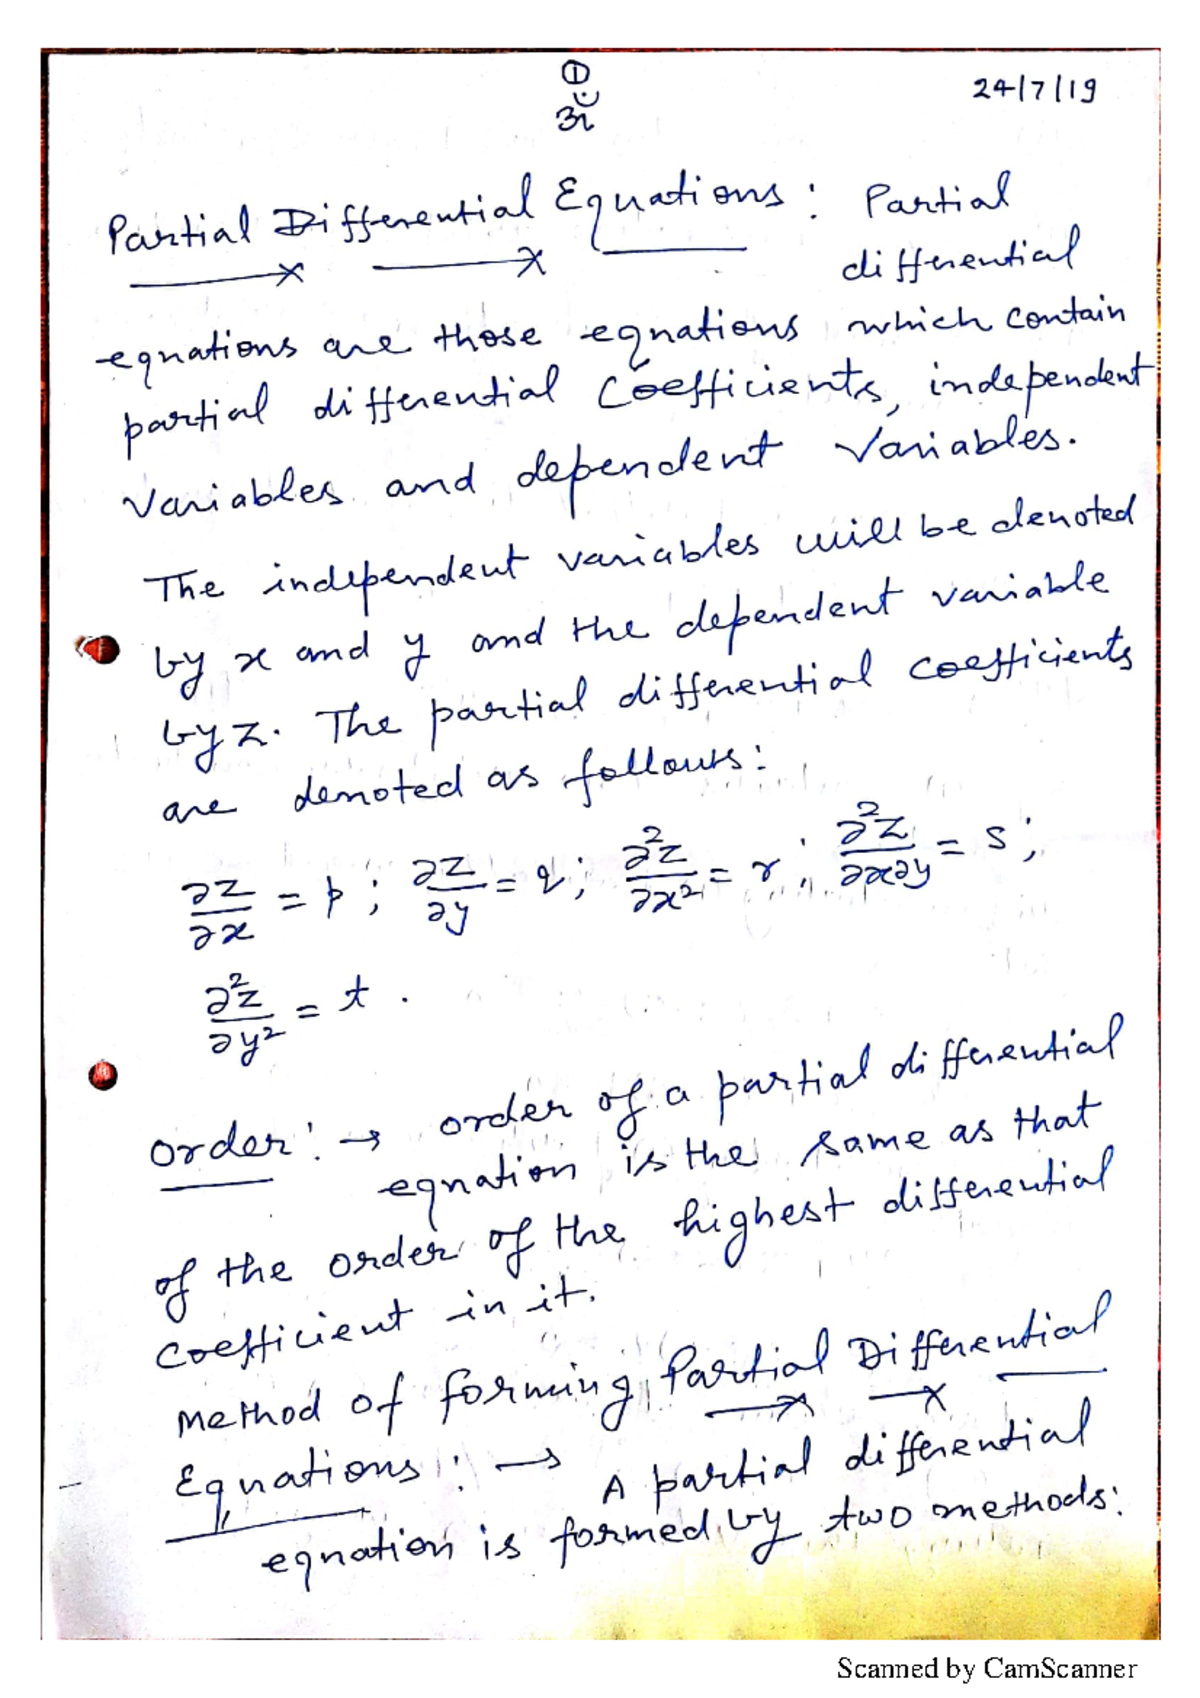 ①
ॐ
24/7/19
Partial Differential Equations: Partial
differential
equations are those equations which contain
partial differential coefficients, independent
variables and dependent variables.
The independent variables will be denoted
by x and y and the dependent variable
by z. The partial differential coefficients
are denoted as follows:
∂z/∂x = p; ∂z/∂y = q; ∂²z/∂x² = r; ∂²z/∂x∂y = s;
∂²z/∂y² = t.
order: → order of a partial differential
equation is the same as that
of the order of the highest differential
coefficient in it.
Method of forming Partial Differential
Equations: → A partial differential
equation is formed by two methods:
Scanned by CamScanner